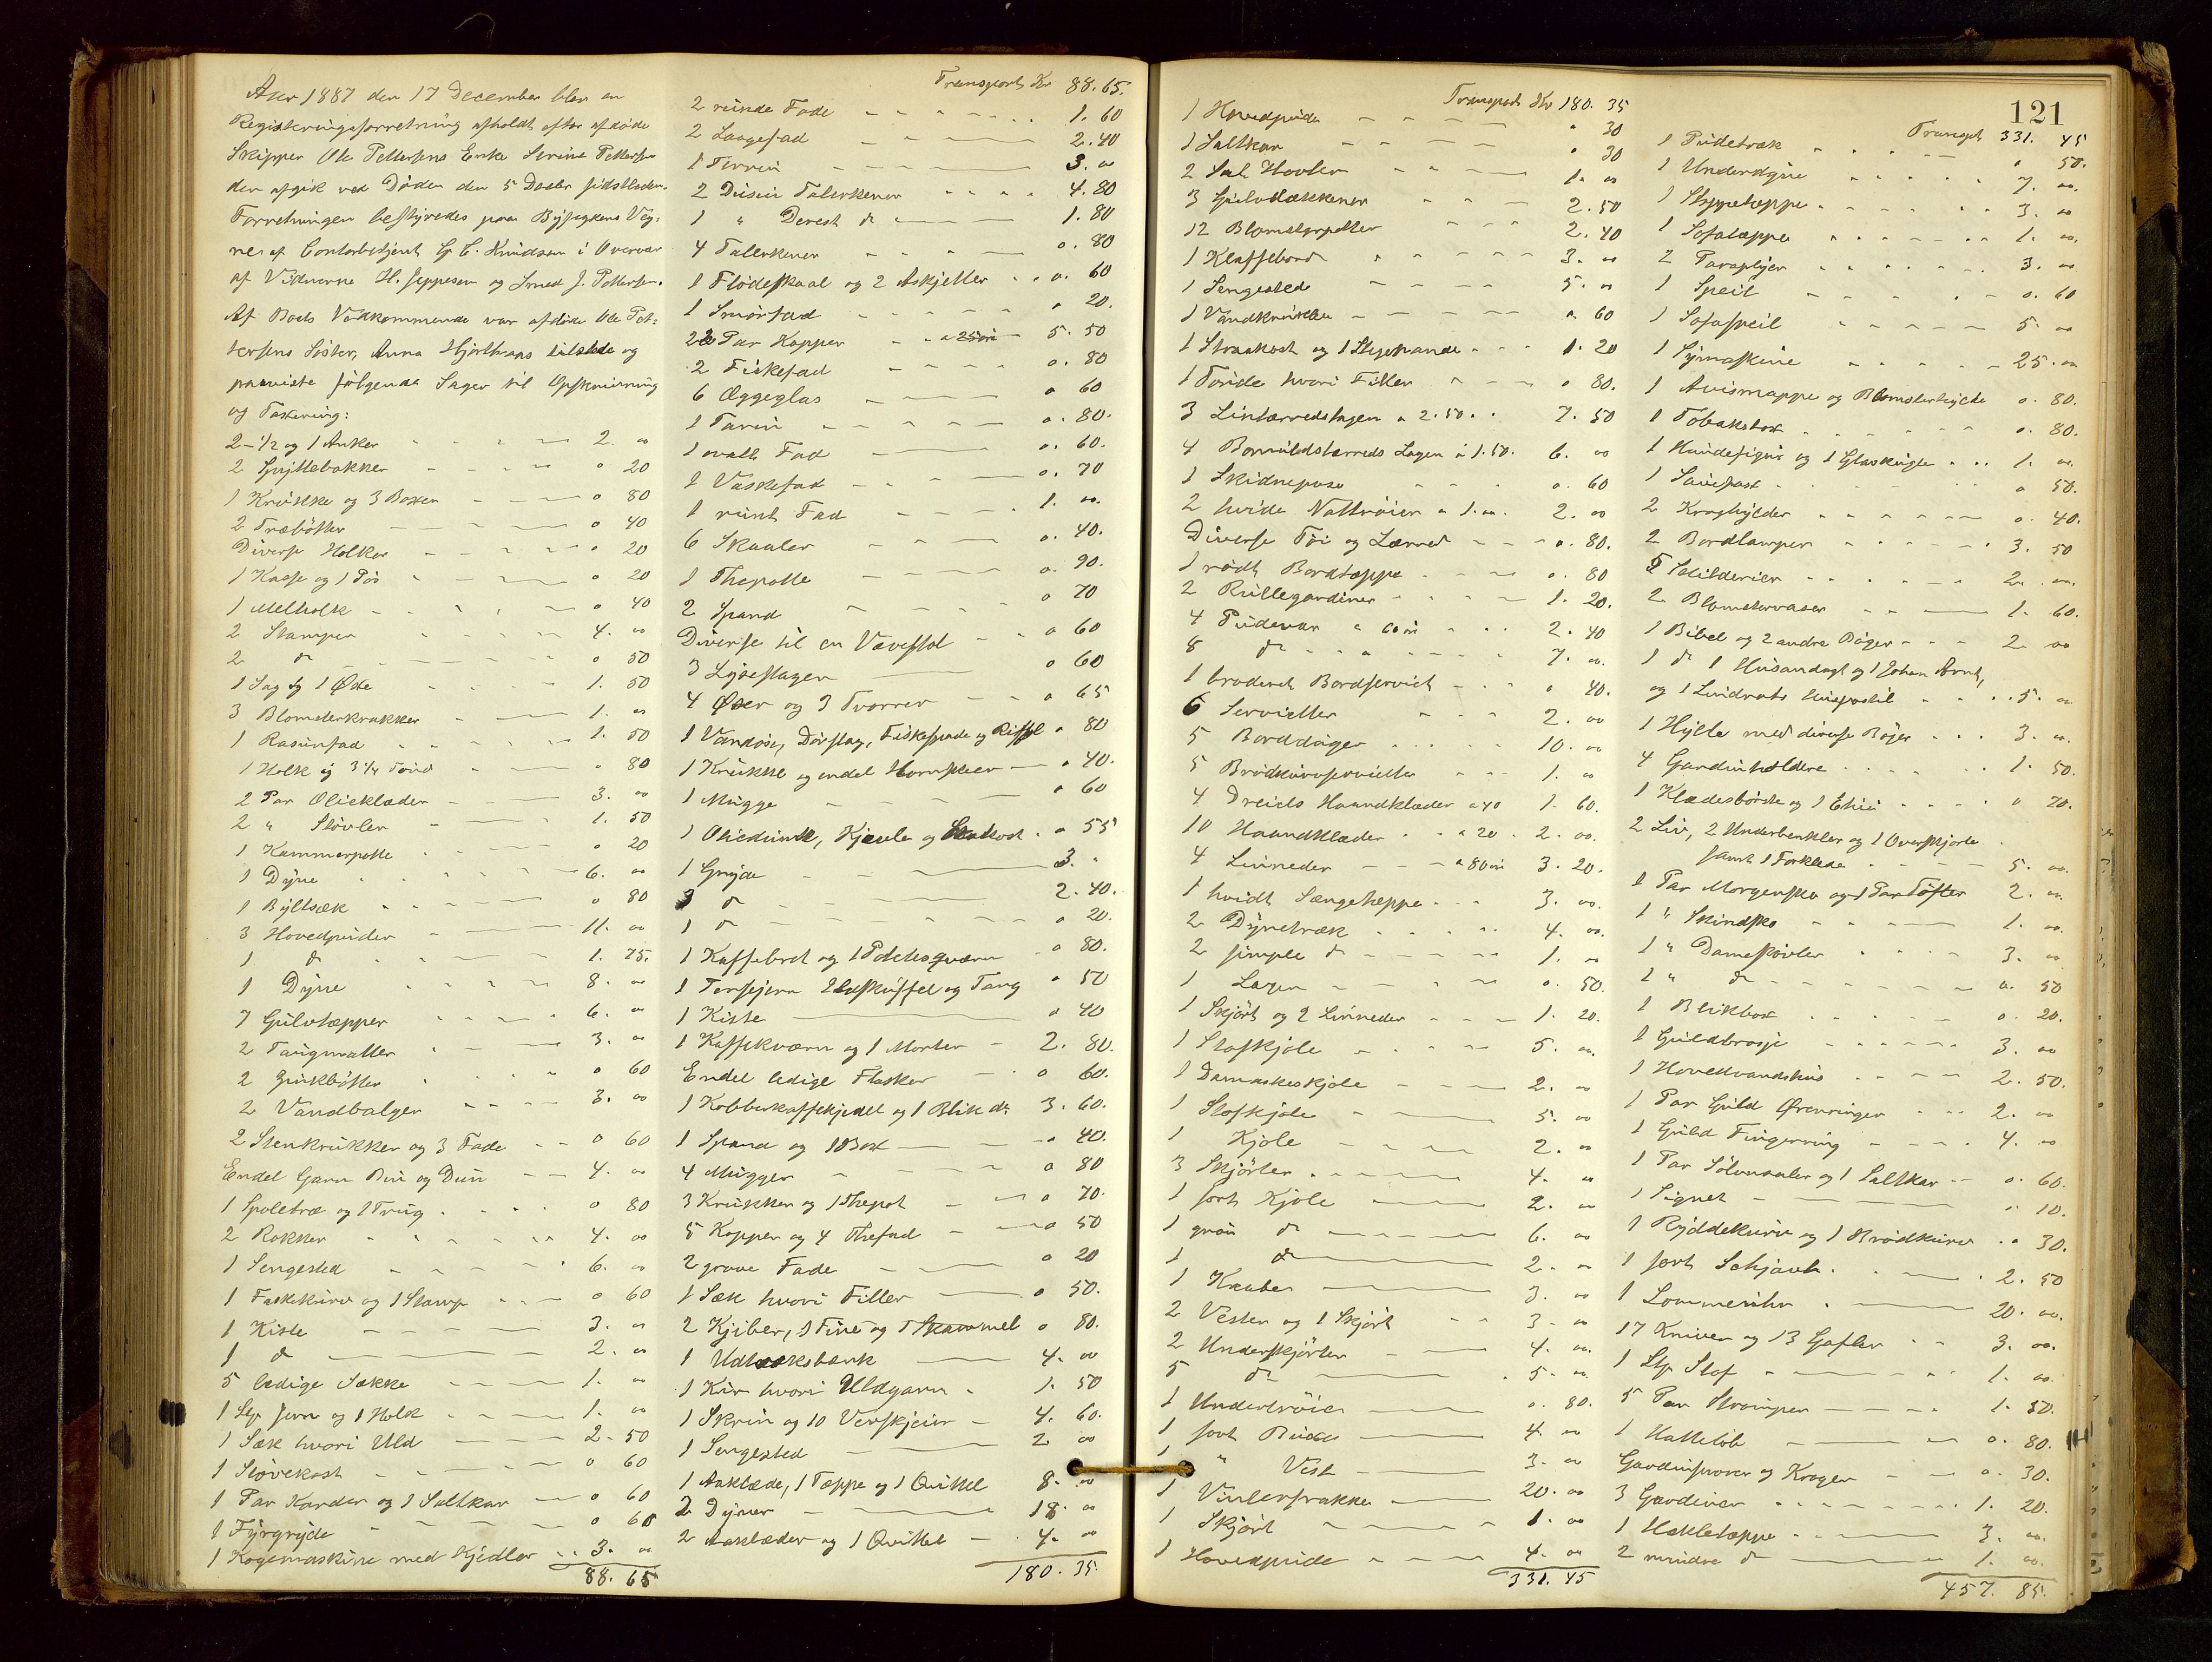 Aar 1887 den 17 December blev en
Registreringsforretning afholdt efter afdøde
Skipper Ole Pettersens Enke Serine Pettersen
der afgik ved Døden den 5 Decbr sidstleden.
Forretningen bestyredes paa Byfogdens Veg-
ne af Contorbetjent C. Knudsen i Overvær
af Vidnerne H. Jeppesen og Smed J. Pettersen.
Af Boets Vedkommende var afdøde Ole Pet-
tersens Søster, Anna Hjorthaas tilstede og
paaviste følgende Sager til Opskrivning
og Taxering:
2-1/2 og 1 Anker 2. 00
2 Spyttebakker 0 20
1 Krukke og 3 Boxer 0 80
2 Træbøtter 0 40
Diverse Holker 0 20
1 Kasse og 1 Pøs 0 20
1 Melholk 0 40
2 Stamper 4. 00
2 do 0 50
1 Sag og 1 Øxe 1. 50
3 Blomsterkrakker 1. 00
1 Rasunfad 1. 50
1 Holk og 3 1/4 Tønde 0 80
2 Par Olieklæder 3. 00
2 " Støvler 1. 50
1 Kammerpotte 0 20
1 Dyne 6. 00
1 Byltsæk 0 80
3 Hovedpuder 11. 00
1 do 1. 75.
1 Dyne 8. 00
7 Gulvtæpper 6. 00
2 Taugmatter 3. 00
2 Bøtter 0 60
2 Vandbalger 3. 00
2 Stenkrukker og 3 Fade 0 60
Endel Garn Bin og Dun 4. 00
1 Spoletræ og 1 Trug 0 80
2 Rokker 4. 00
1 Sengested 6. 00
1 Fiskekurv og 1 Stamp 0 60
1 Kiste 3. 00
1 do 2. 00
5 ledige Sække 1. 00
1 Stp Jern og 1 Holk 1. 00
1 Sæk hvori Uld 2. 50
1 Støvekost 0 60
1 Par Karder og 1 Saltkar 0 60
1 Fyrgryde 0 60
1 Kogemaskine med Kjedler 3. 00
88. 65
Transport Kr 88. 65.
2 runde Fade 1. 60
2 Laagefad 2. 40
1 Terrin 3. 00
2 Dusin Talerkener 4. 80
1 " Desert do 1. 80
4 Talerkener 0. 80
1 Flødeskaal og 2 Askjetter 0. 60
1 Smørfad 0 20.
22 Par Kopper a 25 øre 5. 50
2 Fiskefad 0. 80
6 Æggeglas 0 60
1 Tarin 0. 80.
1 ovalt Fad 0. 60.
1 Vaskefad 0. 70
1 rundt Fad 1. 00.
6 Skaaler 0. 40.
1 Thepotte 0. 90.
2 Spand 0 70
Diverse til en Vævstol 0 60
3 Lysestager 0 60
4 Øser og 3 Tvorrer 0 65
1 Vandøse, Dørslag, Fiskespade og 0 80
1 Krukke og endel Hornskeer 0 40.
1 Mugge 0 60
1 Oliedunk, Kjerule og kost 0 55
1 Gryde 3. "
3 do 2. 40.
1 do 0 20.
1 Kaffebret og 1 Potetesqværn 0 80.
1 Tersejern Ildskuffel og Tang 0 50
1 Kiste 0 40
1 Kaffekværn og 1 Morter 2. 80.
Endel ledige Flasker 0 60.
1 Kobberkaffekjedel og 1 Blik do 3. 60.
1 Spand og 1 Box 40.
4 Mugger 0 80
3 Krukker og 1 Thepot 0 70.
5 Kopper og 4 Thefad 0 50
2 grove Fade 0 20
1 Sæk hvori Filler 0 50.
2 Kjiber, 1 Tine og 1 Skammel 0 80.
1 Udtræksbænk 4. 00
1 Kur hvori Uldgarn 1. 50
1 Skrin og 10 Verskjeier 4. 60.
1 Sengested 2 00
1 Aaklæde, 1 Tæppe og 1 Qviltel 8. 00
2 Dyner 18. 00
2 Aaklæder og 1 Qviltel 4. 00
180. 35.
121
Transport Kr 180. 35
1 Hovedpude 0 30
1 Saltkar 0 30
2 Sal Hovler 1. 00
3 Gulvdækkener 2. 50
12 Blomsterpotter 2. 40
1 Klaffebord 3. 00
1 Sengested 5. 00
1 Vandkrukke 0. 60
1 Straakost og 1 Stegepande 1. 20
1 Tønde hvori Filler 0 80.
3 Linlærredslagen a 2. 50. 7. 50
4 Bomuldslærreds Lagen a 1. 50. 6. 00
1 Skidnepose 0. 60
2 hvide Nattrøier a 1. 00. 2. 00
Diverse Tøi og Lærred 0. 80.
1 rødt Bordtæppe 0. 80
2 Rullegardiner 1. 20.
4 Pudevar a 60 øre 2. 40
8 do 7. 00.
1 broderet Bordserviet 0 40.
6 Servietter 2. 00
5 Bordduger 10. 00
5 Brødkurvservietter 1. 00
4 Dreiels Haandklæder a 40 1. 60.
10 Haandklæder a 20 2. 00.
4 Linneder a 80 øre 3. 20.
1 hvidt Sængetæppe 3. 00.
2 Dynetræk 4. 00.
2 simple do 1. 00
1 Lagen 0. 50.
1 Skjört og 2 Linneder 1. 20.
1 Stofkjole 5. 00.
1 Damaskeskjole 2. 00
1 Stofkjole 5. 00
1 Kjole 2. 00
3 Skjörter 4. 00
1 sort Kjole 2. 00
1 grøn do 6. 00
1 do 2. 00
1 Kaabe 3. 00
2 Vester og 1 Skjört 3. 00
2 Underskjörter 4. 00.
5 do 5. 00
1 Undertrøie 0. 80.
1 sort Buxe 4. 00
1 " Vest 3. 00
1 Vinterfrakke 20. 00
1 Skjört 1. 00
1 Hovedpude 4. 00
331. 45
Transpt 331. 45
1 Pudetræk 0 50.
1 Underdyne 7. 00.
1 Stoppetæppe 3. 00
1 Sofatæppe 1. 00.
2 Paraplyer 3. 00
1 Speil 0. 60
1 Sofaspeil 5. 00
1 Symaskine 25. 00
1 Avismappe og Blomsterhylde 0. 80.
1 Tobaksbox 0. 80.
1 Hundefigur og 1 Glaskugle 1. 00.
1 50.
2 Kraghylder 0. 40.
2 Bordlamper 3. 50
5 Skilderier 2. 00.
2 Blomstervaser 1. 60.
1 Bibel og 2 andre Bøger 2. 00
1 do 1 Husandagt og 1 Johan Arnt,
og 1 Lindrots Huspostil 5. 00
1 Hylle med diverse Bøger 3. 00.
4 Gardinholdere 1. 50.
1 Klædesbørste og 1 Etui 0 20.
2 Liv, 2 Underbenklær og 1 Overskjorte
samt 1 Forklæde 5. 00.
1 Par Morgensko og 1 Par Tøfler 2. 00.
1 " Skindsko 1. 00.
1 " Damestøvler 3. 00
1 " do 0. 50
1 Blikbox 0. 20.
1 Guldbrosje 3. 00
1 Hovedvandshus 2. 50.
1 Par Guld Ørenringer 2. 00
1 Guld Fingerring 4. 00
1 Par og 1 Saltkar 0. 60.
1 Signet 0. 10.
1 Ryddekurv og 1 Brødkurv 0 30.
1 sort Schjavl 2. 50
1 Lommeuhr 20. 00.
17 Kniver og 13 Gafler 3. 00.
1 Stp Stof 1. 00.
5 Par Strømper 1. 50.
1 Hatteløb 0. 80.
Gardinprover og Krager 0. 30.
3 Gardiner 1. 20.
1 Hekletæppe 3. 00.
2 mindre do 1. 00.
457. 85.